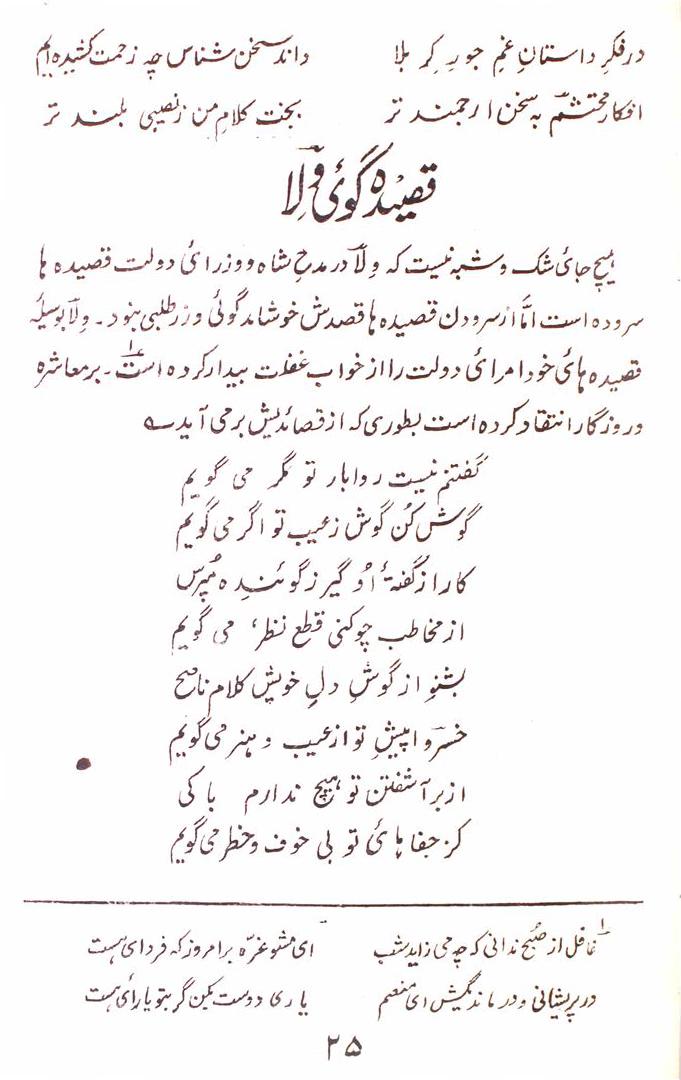 در فکرِ داستانِ غمِ جورِ کربلا داند سخن شناس چہ زحمت کشیدہ ایم
افکارِ محتشم بہ سخن ارجمند تر بخت کلامِ من ز نصیبی بلند تر
قصیدہ گوئی وِلا
ہیچ جائ شک و شبہ نیست کہ وِلا در مدحِ شاہ و وزرائ دولت قصیدہ ہا
سرودہ است امّا از سرودن قصیدہ ہا قصدش خوشامد گوئی و زر طلبی نبود۔ وِلا بوسیلہٴ
قصیدہ ہائ خود امرائ دولت را از خوابِ غفلت بیدار کردہ است۱۔ بر معاشرہ
و روزگار انتقاد کردہ است بطوری کہ از قصائدیش بر می آید ؎
گفتنم نیست روا بار تو گر می گویم
گوش کن گوش ز عیب تو اگر می گویم
کار از گفتۂ اُو گیر ز گوئندہ مپرس
از مخاطب چو کنی قطع نظر، می گویم
بشنو از گوشِ دلِ خویش کلام ناصح
خسروا پیشِ تو از عیب و ہنر می گویم
از بر آشفتن تو ہیچ ندارم باکی
کز جفا ہائ تو بی خوف و خطر می گویم
۱ غافل از صبح ندانی کہ چہ می زاید شب ای مشو غرّہ بر امروز کہ فردای ہست
در پریشانی و درماندگیش ای منعم یاری دوست بکن گر بتو یارائ ہست
۲۵